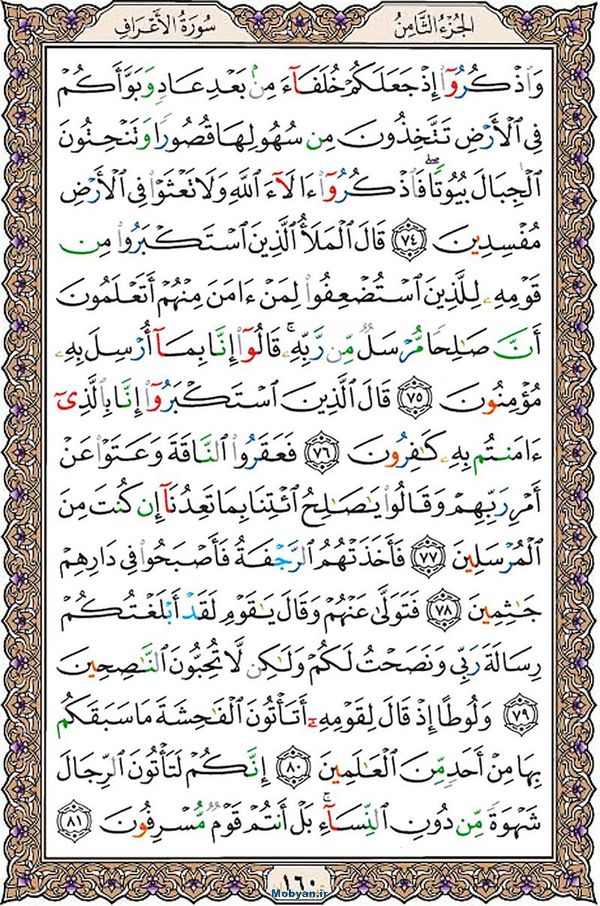 الجزء الثامن
سورة الأعراف
وَاذْكُرُوٓا۟ إِذْ جَعَلَكُمْ خُلَفَآءَ مِنۢ بَعْدِ عَادٍ وَبَوَّأَكُمْ
فِي ٱلْأَرْضِ تَتَّخِذُونَ مِن سُهُولِهَا قُصُورًا وَتَنْحِتُونَ
ٱلْجِبَالَ بُيُوتًا ۖ فَٱذْكُرُوٓا۟ ءَالَآءَ ٱللَّهِ وَلَا تَعْثَوْا۟ فِي ٱلْأَرْضِ
مُفْسِدِينَ ٧٤ قَالَ ٱلْمَلَأُ ٱلَّذِينَ ٱسْتَكْبَرُوا۟ مِن
قَوْمِهِۦ لِلَّذِينَ ٱسْتُضْعِفُوا۟ لِمَنْ ءَامَنَ مِنْهُمْ أَتَعْلَمُونَ
أَنَّ صَٰلِحًا مُّرْسَلٌ مِّن رَّبِّهِۦ ۚ قَالُوٓا۟ إِنَّا بِمَآ أُرْسِلَ بِهِۦ
مُؤْمِنُونَ ٧٥ قَالَ ٱلَّذِينَ ٱسْتَكْبَرُوٓا۟ إِنَّا بِٱلَّذِىٓ
ءَامَنتُم بِهِۦ كَٰفِرُونَ ٧٦ فَعَقَرُوا۟ ٱلنَّاقَةَ وَعَتَوْا۟ عَنْ
أَمْرِ رَبِّهِمْ وَقَالُوا۟ يَٰصَٰلِحُ ٱئْتِنَا بِمَا تَعِدُنَآ إِن كُنتَ مِنَ
ٱلْمُرْسَلِينَ ٧٧ فَأَخَذَتْهُمُ ٱلرَّجْفَةُ فَأَصْبَحُوا۟ فِي دَارِهِمْ
جَٰثِمِينَ ٧٨ فَتَوَلَّىٰ عَنْهُمْ وَقَالَ يَٰقَوْمِ لَقَدْ أَبْلَغْتُكُمْ
رِسَالَةَ رَبِّي وَنَصَحْتُ لَكُمْ وَلَٰكِن لَّا تُحِبُّونَ ٱلنَّٰصِحِينَ
٧٩ وَلُوطًا إِذْ قَالَ لِقَوْمِهِۦٓ أَتَأْتُونَ ٱلْفَٰحِشَةَ مَا سَبَقَكُم
بِهَا مِنْ أَحَدٍ مِّنَ ٱلْعَٰلَمِينَ ٨٠ إِنَّكُمْ لَتَأْتُونَ ٱلرِّجَالَ
شَهْوَةً مِّن دُونِ ٱلنِّسَآءِ ۚ بَلْ أَنتُمْ قَوْمٌ مُّسْرِفُونَ ٨١
١٦٠
Mobyan.ir